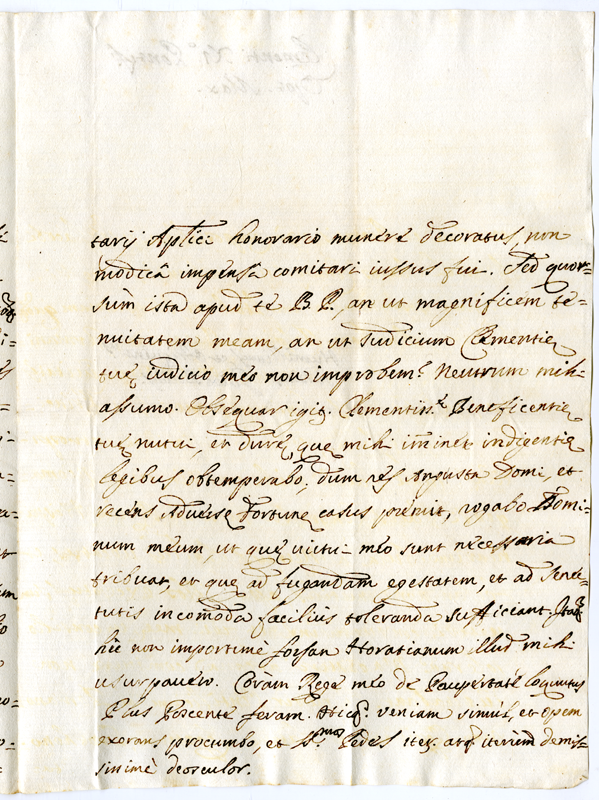 tarij Aplici honorario munere decoratus, non
modicâ impensâ comitari iussus fui. Sed quor=
sum ista apud te B. P., an ut magnificem te=
nuitatem meam, an ut Iudicium Clementię
tuę iudicio meo non improbem? Neutrum mihi
assumo. Obsequar igiť. Clementiss.ę Beneficentię
tuę nutui, et durę, quę mihi im̃inet indigentię
legibus obtemperabo, dum res Angusta Domi, et
recens Adversę Fortunę casus premit, rogabo Domi=
num meum, ut quę victui meo sunt necessaria
tribuat, et quę ad fugandam egestatem, et ad Senec
tutis incom̃oda facilius toleranda sufficiant.
hic non importunè forsan Horatianum illud mihi
usurpavero. Coràm Rege meo de Paupertate loquutus
Plus Poscente feram. veniam simùl, et opem
exorans procumbo, et Pedes iteř. atq. iterùm demis=
sissimè deosculor.